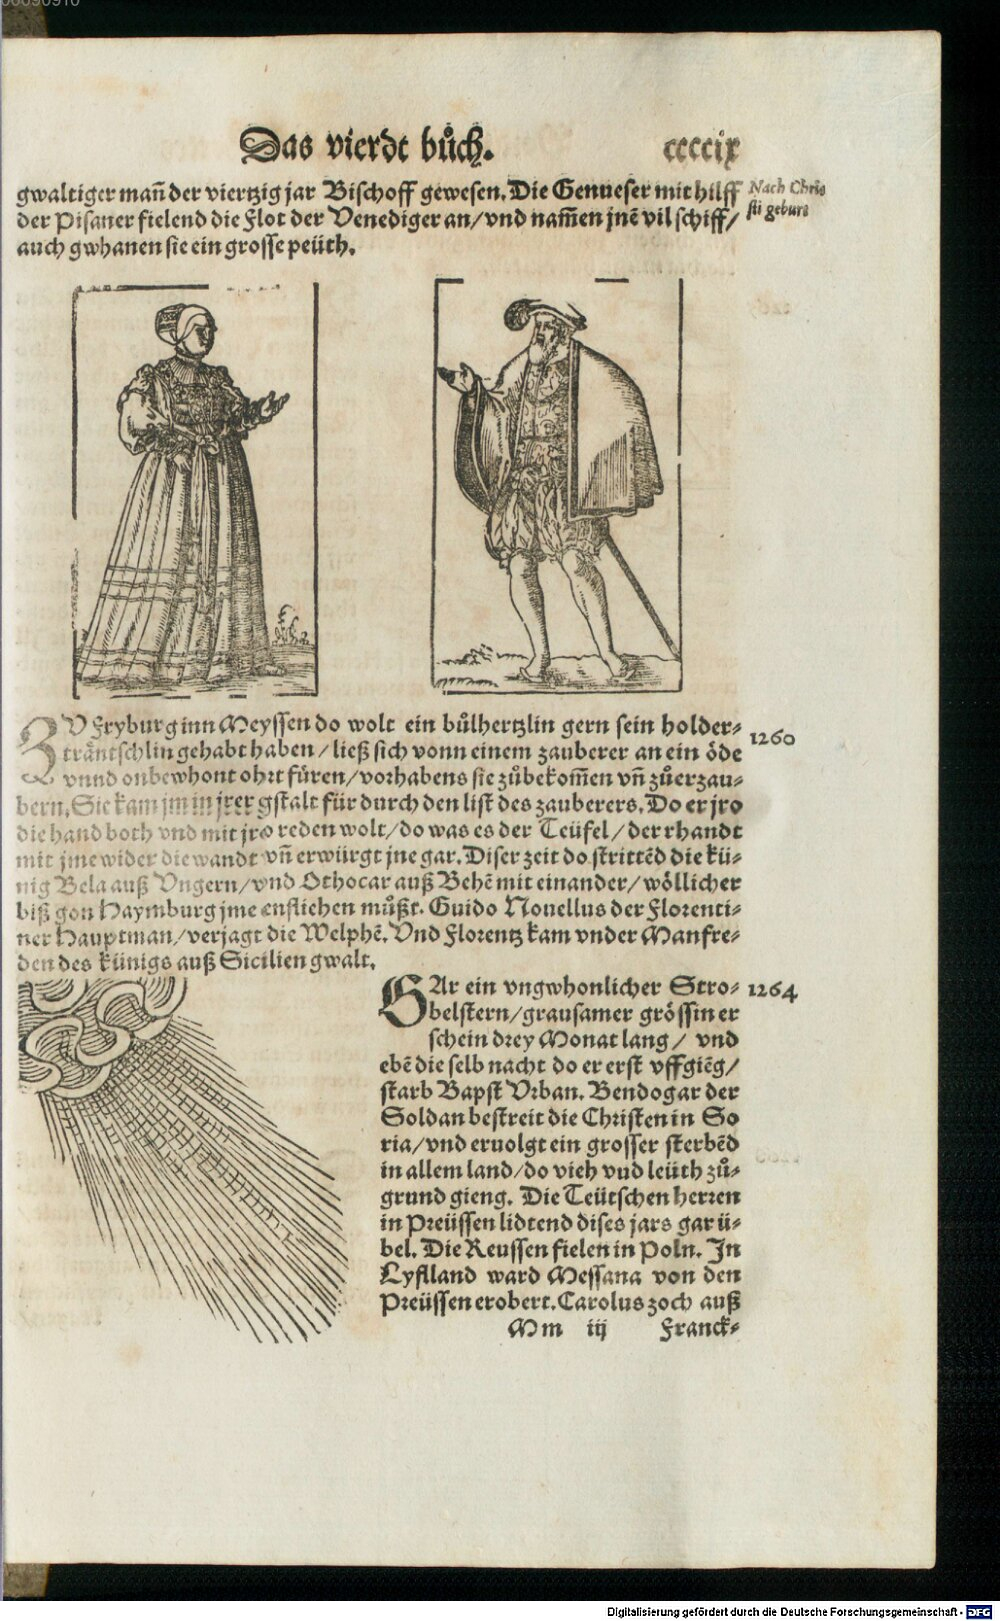 00090910
Das vierdt bůch. ccccix
gwaltiger mañ der viertzig jar Bischoff gewesen. Die Genueser mit hilff
Nach Chri-
der Pisaner fielend die Flot der Venediger an/ vnd nam̃en jnē vil schiff/
sti geburt
auch gwhanen sie ein grosse peüth.
ZV Fryburg inn Meyssen do wolt ein bůlhertzlin gern sein holder-
1260
träntschlin gehabt haben/ ließ sich vonn einem zauberer an ein öde
vnnd onbewhont ohrt füren/ vorhabens sie zůbekom̃en vñ zůerzau-
bern. Sie kam jm in jrer gstalt für durch den list des zauberers. Do er jro
die hand both vnd mit jro reden wolt/ do was es der Teüfel/ der rhandt
mit jme wider die wandt vñ erwürgt jne gar. Diser zeit do strittēd die kü-
nig Bela auß Vngern/ vnd Othocar auß Behē mit einander/ wöllicher
biß gon Haymburg jme enfliehen můßt. Guido Nouellus der Florenti-
ner Hauptman/ verjagt die Welphē. Vnd Florentz kam vnder Manfre-
den des künigs auß Sicilien gwalt.
GAr ein vngwhonlicher Stro-
1264
belstern/ grausamer grössin er
schein drey Monat lang/ vnd
ebē die selb nacht do er erst vffgiēg/
starb Bapst Vrban. Bendogar der
Soldan bestreit die Christen in So
ria/ vnd eruolgt ein grosser sterbēd
in allem land/ do vieh vnd leüth zů-
grund gieng. Die Teütschen herren
in Preüssen lidtend dises jars gar ü-
bel. Die Reussen fielen in Poln. In
Lyfflland ward Messana von den
Preüssen erobert. Carolus zoch auß
Mm iij Franck-
Digitalisierung gefördert durch die Deutsche Forschungsgemeinschaft - DFG